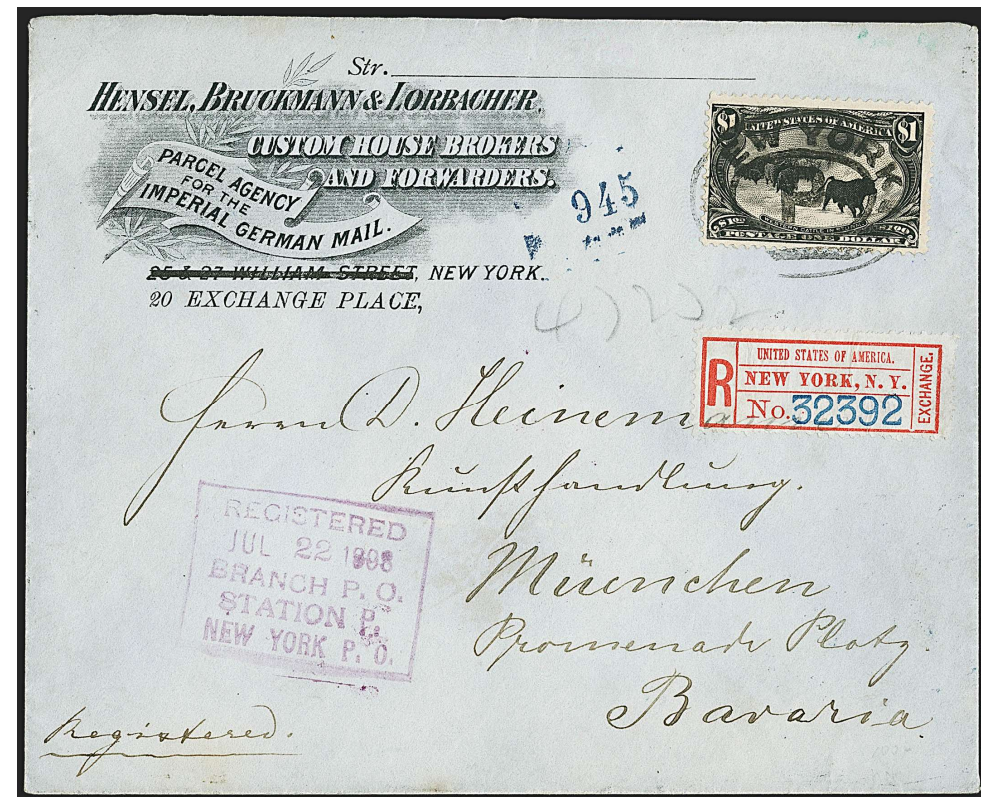 Str.
HENSEL, BRUCKMANN & LORBACHER,
CUSTOM HOUSE BROKERS
AND FORWARDERS.
PARCEL AGENCY
FOR THE
IMPERIAL GERMAN MAIL.
25 & 27 WILLIAM STREET, NEW YORK.
20 EXCHANGE PLACE,
945
$1 UNITED STATES OF AMERICA $1
NEW YORK
P
POSTAGE ONE DOLLAR
47232
R
UNITED STATES OF AMERICA.
NEW YORK, N. Y.
No. 32392
EXCHANGE.
Herrn D. Heinemann
Kunsthandlung.
Muenchen
Promenade Platz
Bavaria.
REGISTERED
JUL 22 1898
BRANCH P. O.
STATION P.
NEW YORK P. O.
Registered.